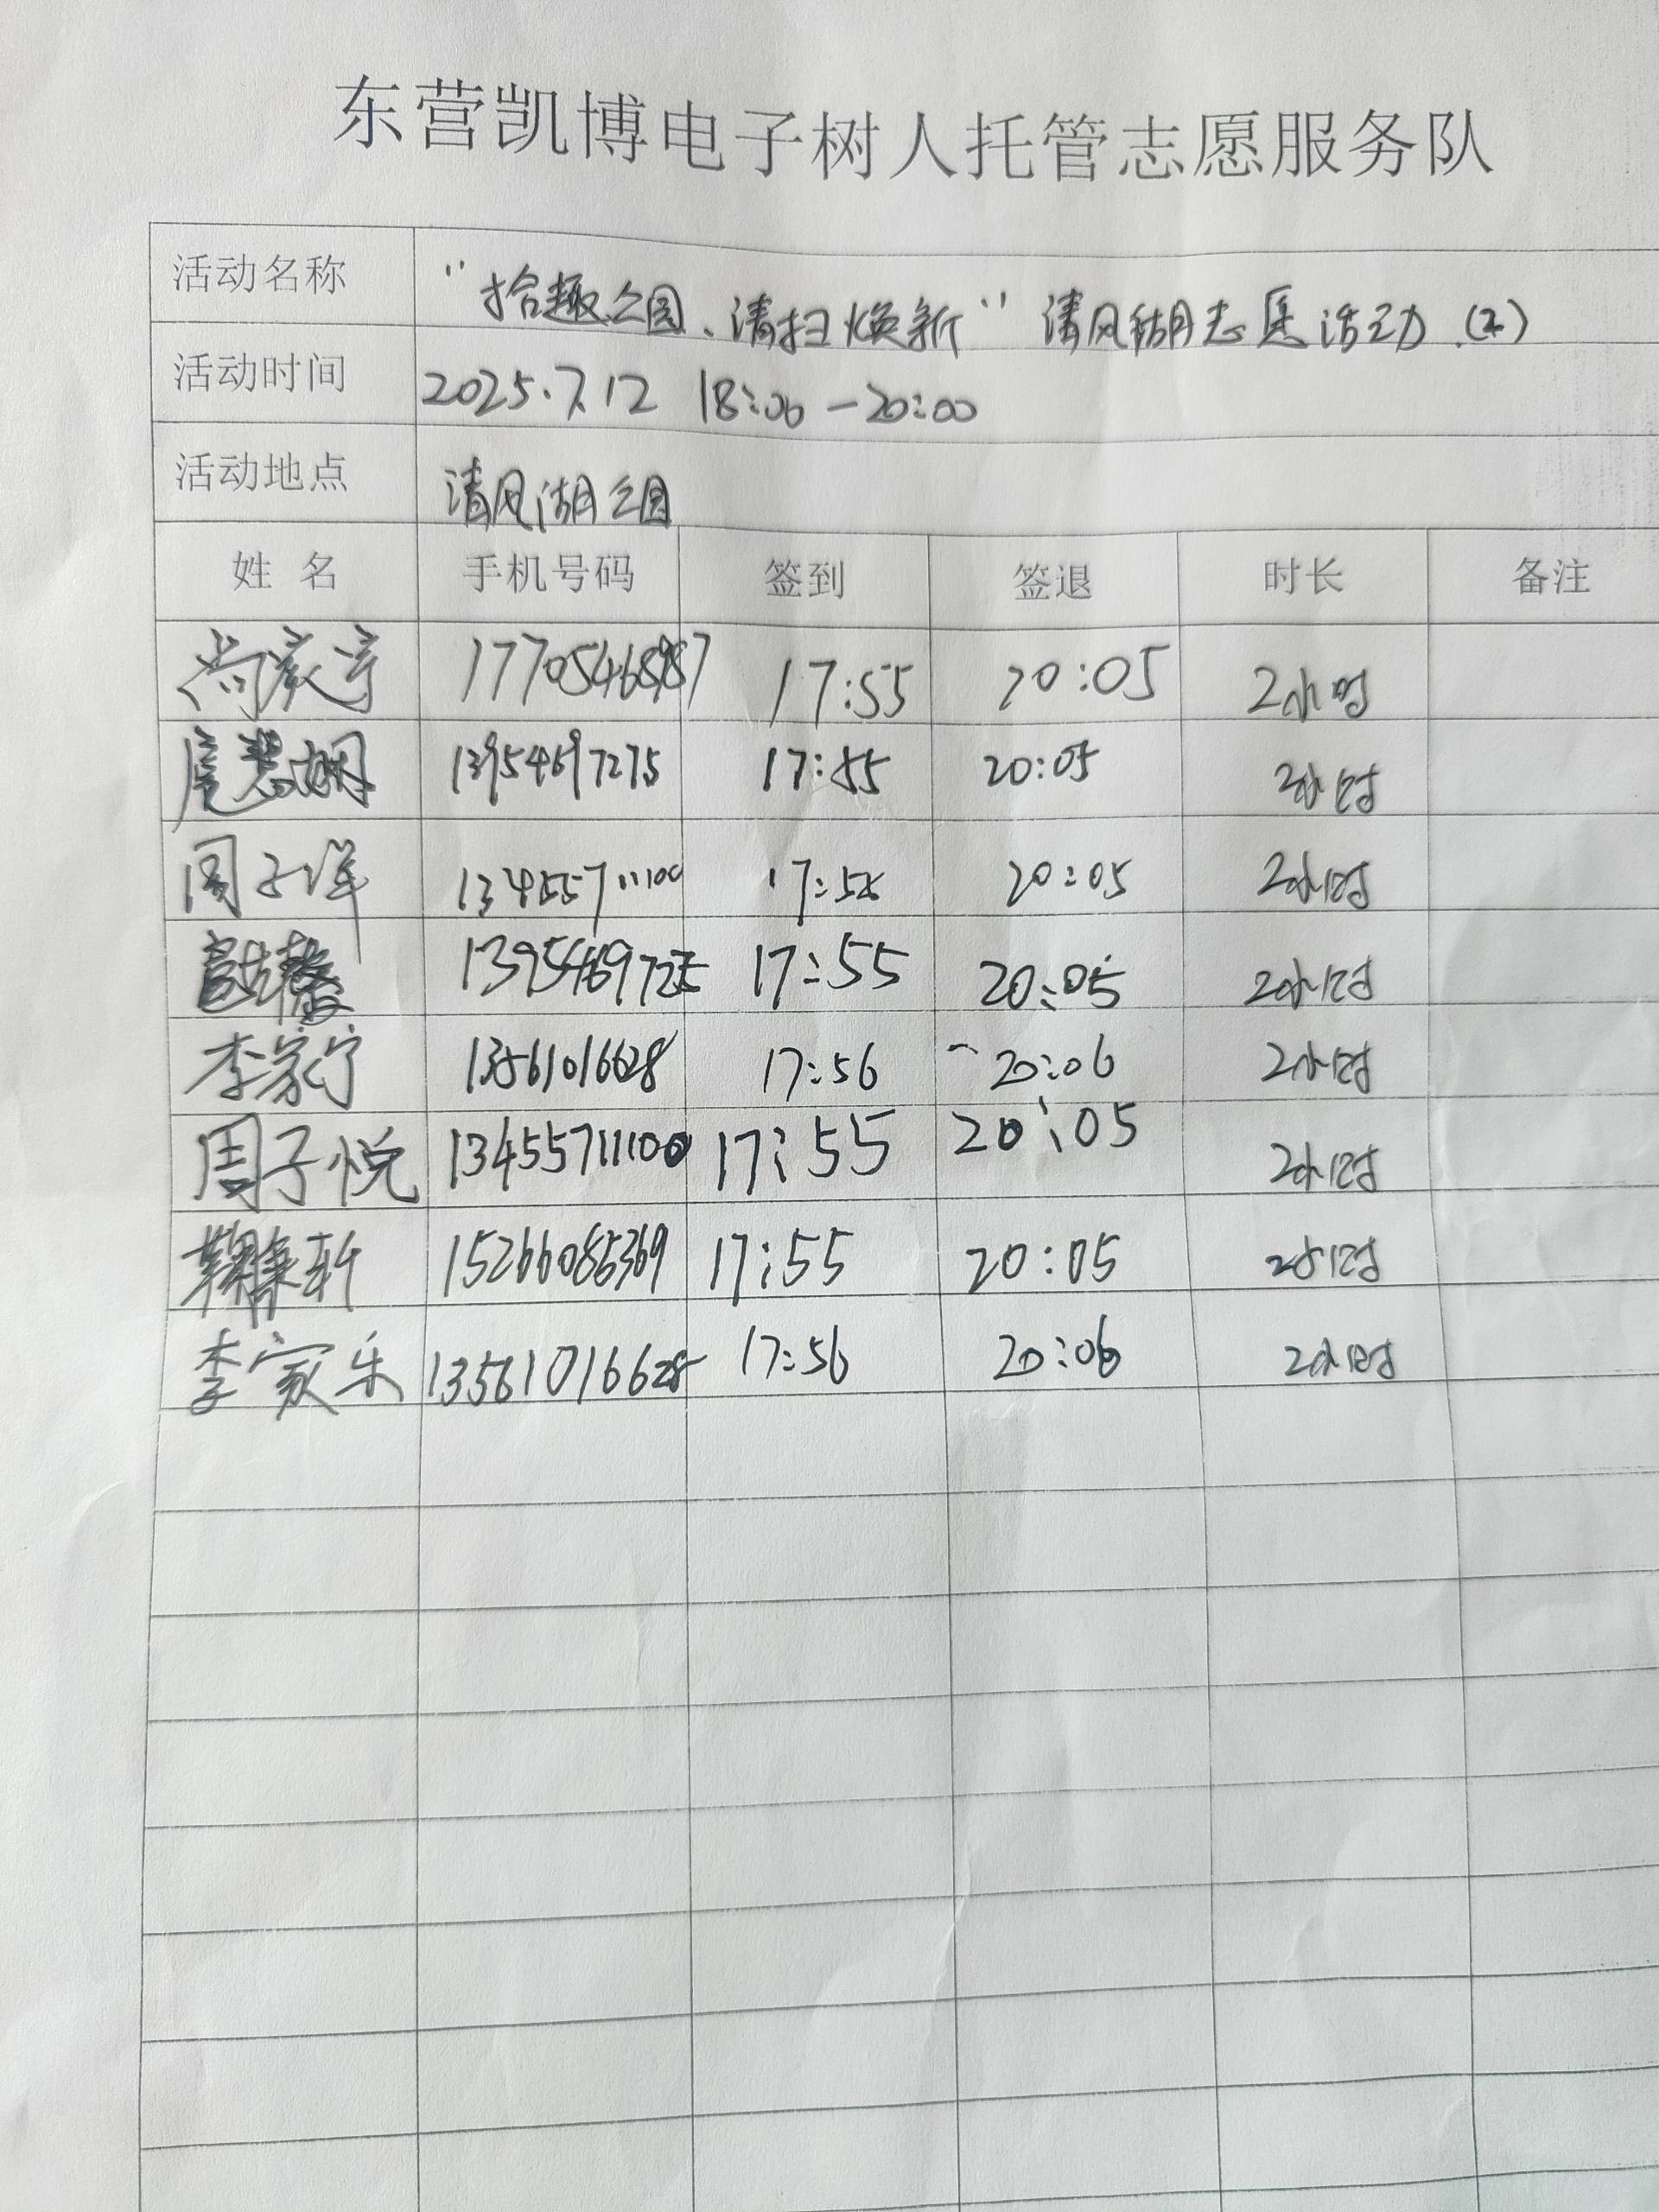 东营凯博电子树人托管志愿服务队
活动名称 "拾趣公园、清扫焕新"清风湖志愿活动.(2)
活动时间 2025.7.12 18:00-20:00
活动地点 清风湖公园
姓名 手机号码 签到 签退 时长 备注
17:55 20:05 2小时
扈慧姻 13954697275 17:55 20:05 2小时
周子洋 13455711100 20:05 2小时
17:55 20:05 2小时
李家宁 13561016628 17:56 20:06 2小时
周子悦 13455711100 17:55 20:05 2小时
15266085369 17:55 20:05 2小时
李家乐 13561016628 17:56 20:06 2小时